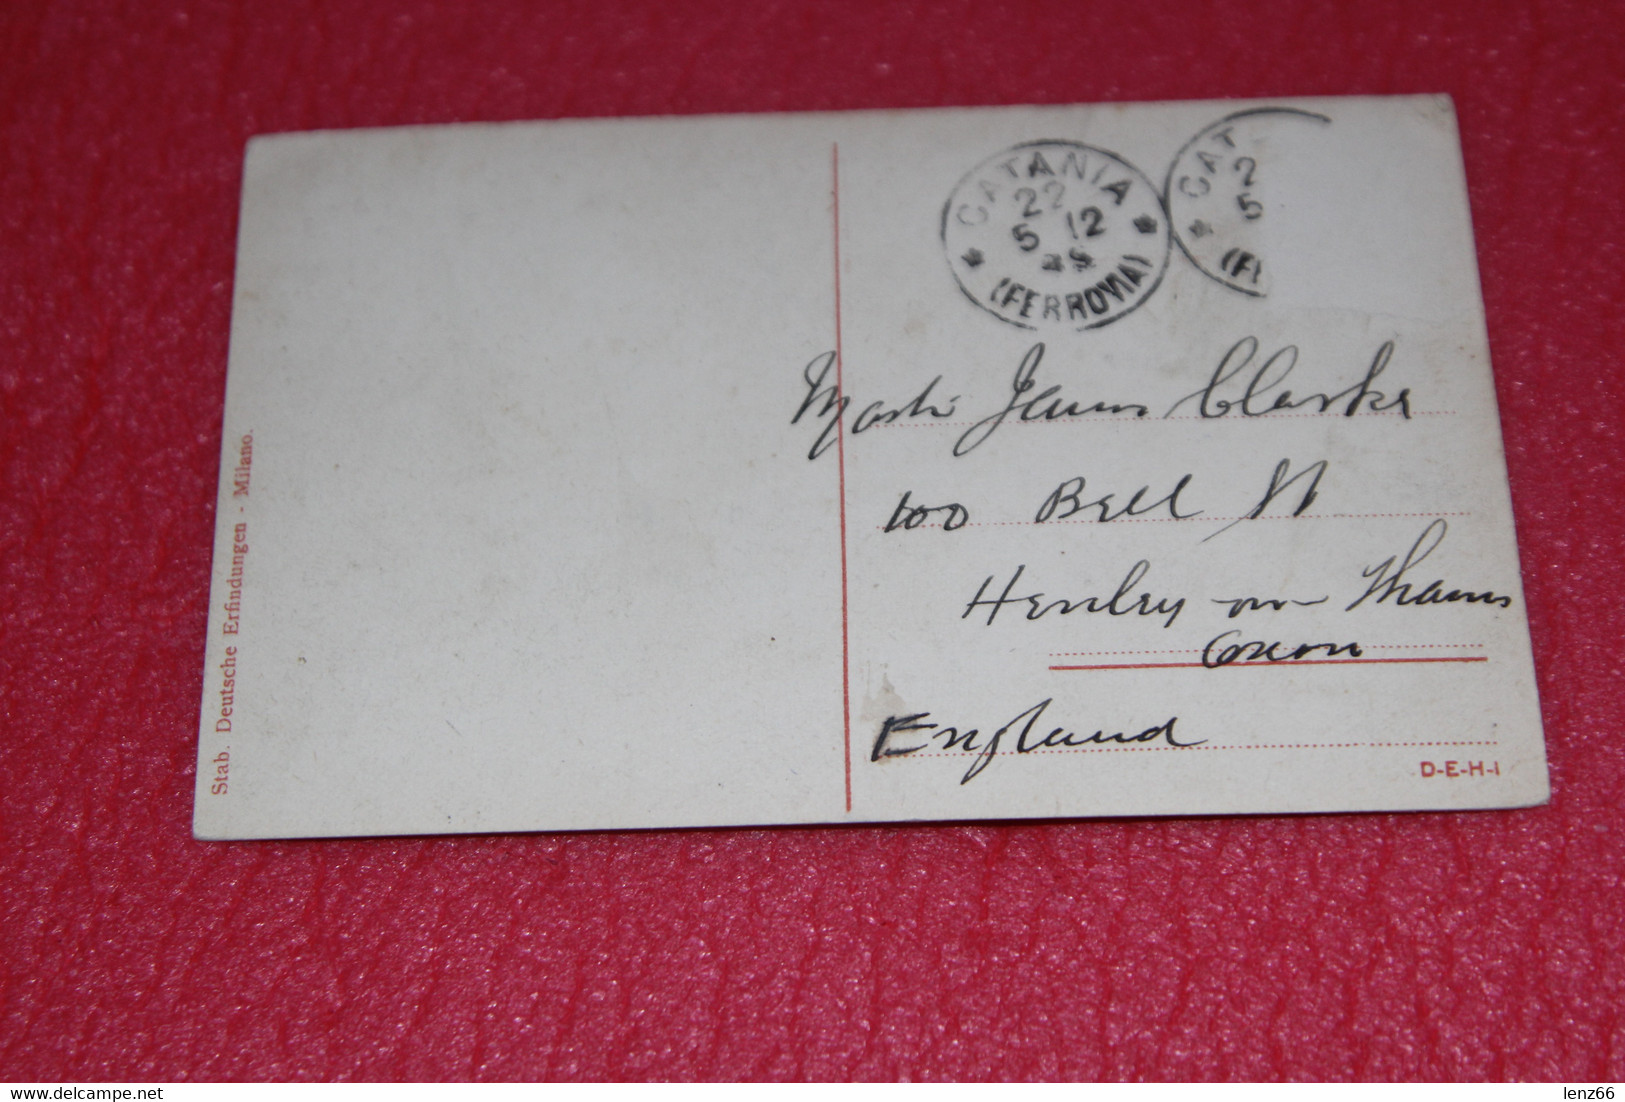 CATANIA
22
5 12
(FERROVIA)
CAT
2
5
(F
Mastr James Clarke
100 Bell St
Henley-on-Thames
Oxon
England
Stab. Deutsche Erfindungen - Milano.
D-E-H-I
delcampe.net
lenz66